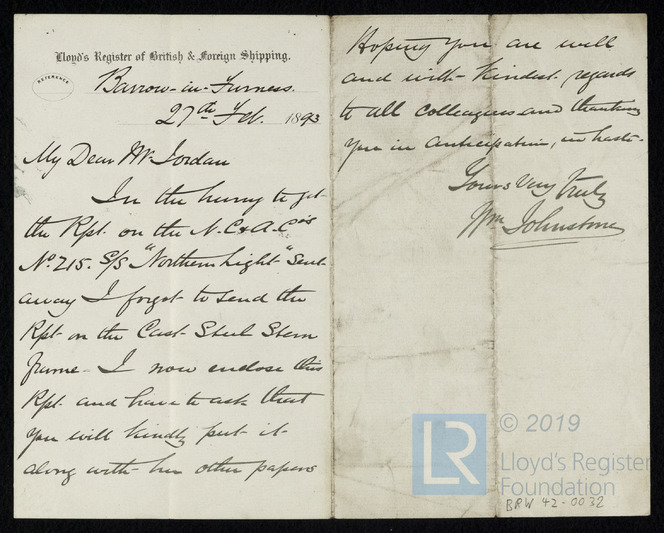 Lloyd's Register of British & Foreign Shipping.
REFERENCE
Barrow-in-Furness.
27th Feb. 1893
My Dear Mr Jordan
In the hurry to get
the Rpt. on the N.C & A. Co's
No. 215. S/S "Northern Light" sent
away I forgot to send the
Rpt. on the Cast Steel Stern
frame - I now enclose this
Rpt. and have to ask that
you will kindly put it
along with her other papers
Hoping you are well
and with kindest regards
to all colleagues and thanking
you in anticipation, in haste.
Yours very truly
Wm Johnstone
LR © 2019
Lloyd's Register
Foundation
BRW 42-0032